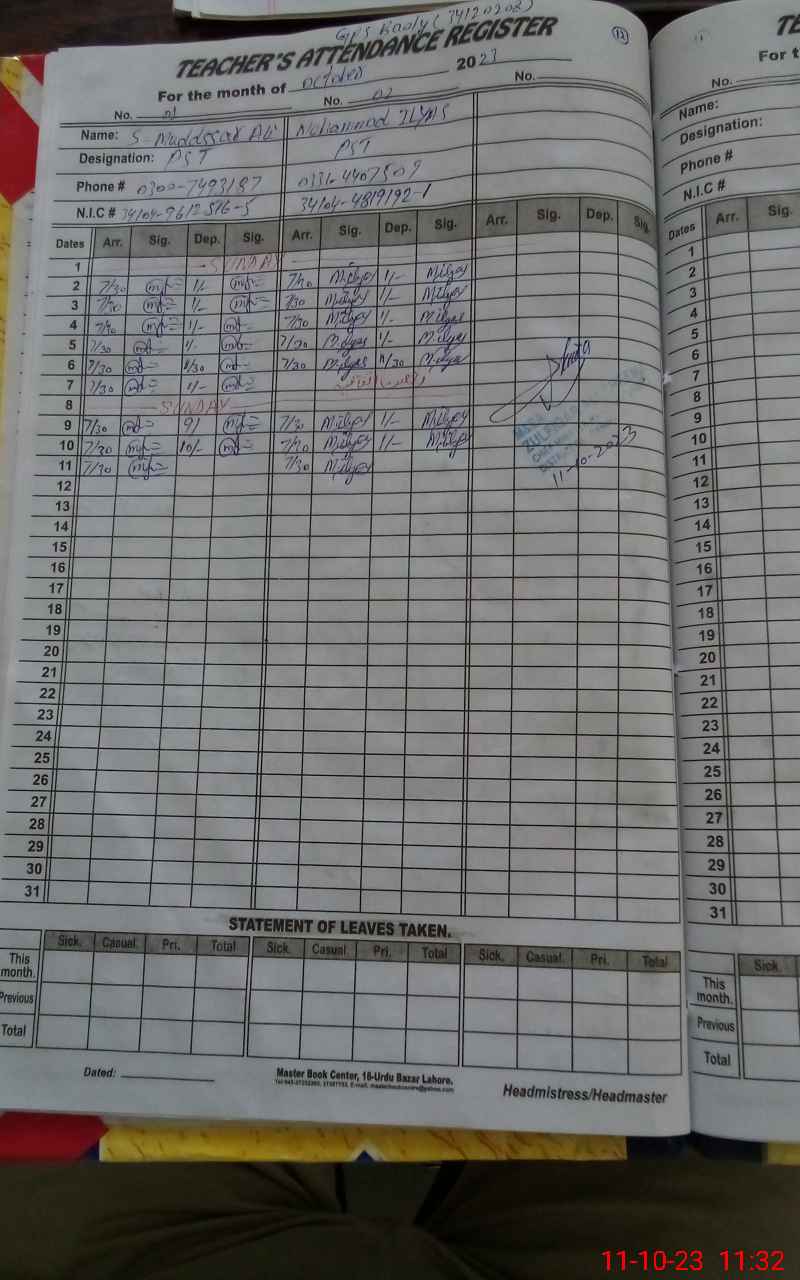 GPS Baoly (34120202)
TEACHER'S ATTENDANCE REGISTER
(12)
For the month of October 2023
No. 01 No. 02 No.
Name: S. Muddssar Ali Mohammad Ilyas
Designation: PST PST
Phone # 0300-7493187 0331-4407509
N.I.C # 34104-9612516-5 34104-4819192-1
Dates Arr. Sig. Dep. Sig. Arr. Sig. Dep. Sig. Arr. Sig. Dep. Sig.
1 SUNDAY
2 7/30 1/- 7/30 M.ilyas 1/- M.ilyas
3 7/30 1/- 7/30 M.ilyas 1/- M.ilyas
4 7/30 1/- 7/30 M.ilyas 1/- M.ilyas
5 7/30 1/- 7/30 M.ilyas 1/- M.ilyas
6 7/30 11/30 7/30 M.ilyas 11/30 M.ilyas
7 7/30 1/-
8 SUNDAY
9 7/30 9/ 7/30 M.ilyas 1/- M.ilyas
10 7/30 10/- 7/30 M.ilyas 1/- M.ilyas
11 7/30 7/30 M.ilyas
11-10-2023
12
13
14
15
16
17
18
19
20
21
22
23
24
25
26
27
28
29
30
31
STATEMENT OF LEAVES TAKEN.
Sick. Casual. Pri. Total Sick. Casual Pri. Total Sick. Casual. Pri. Total
This month.
Previous
Total
Dated:
Master Book Center, 16-Urdu Bazar Lahore.
Headmistress/Headmaster
TE
For t
No.
Name:
Designation:
Phone #
N.I.C #
Dates Arr. Sig.
1
2
3
4
5
6
7
8
9
10
11
12
13
14
15
16
17
18
19
20
21
22
23
24
25
26
27
28
29
30
31
Sick
This month.
Previous
Total
11-10-23 11:32